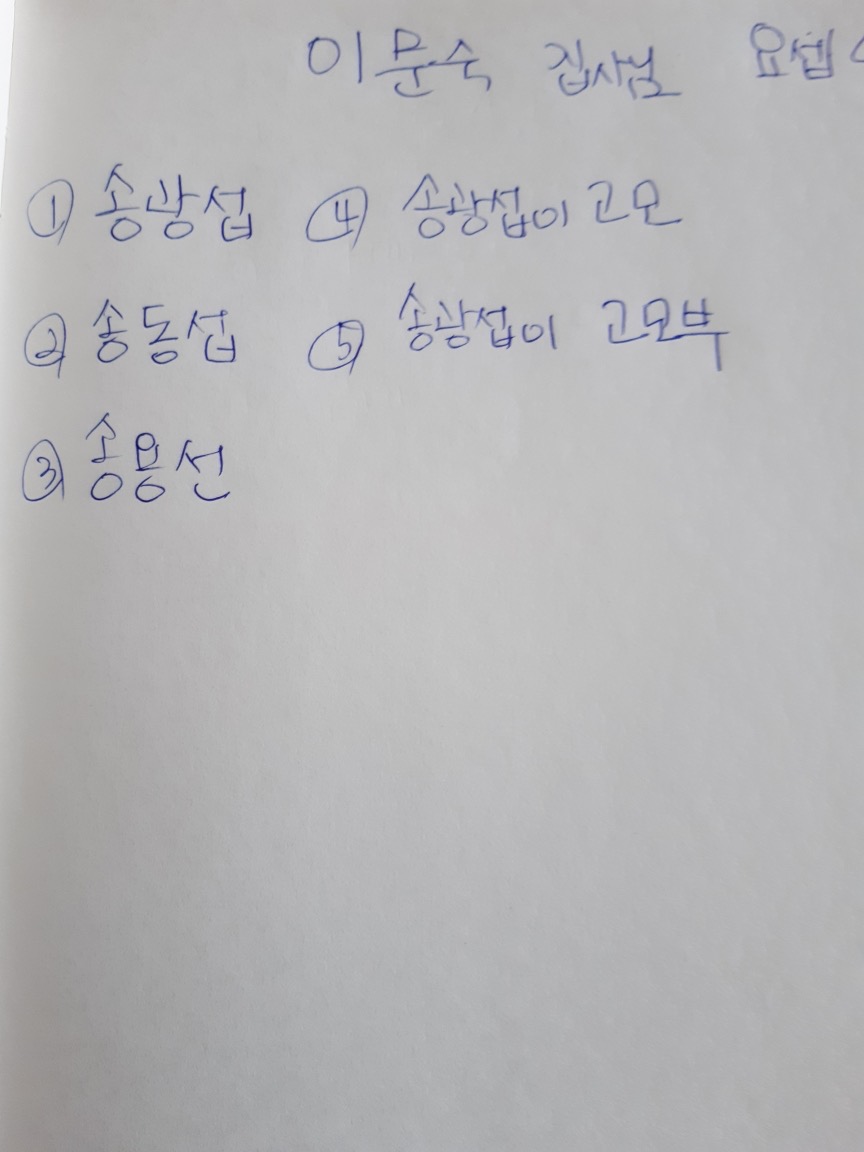 이문숙 집사님 요셉
① 송광섭 ④ 송광섭이 고모
② 송동섭 ⑤ 송광섭이 고모부
③ 송용선